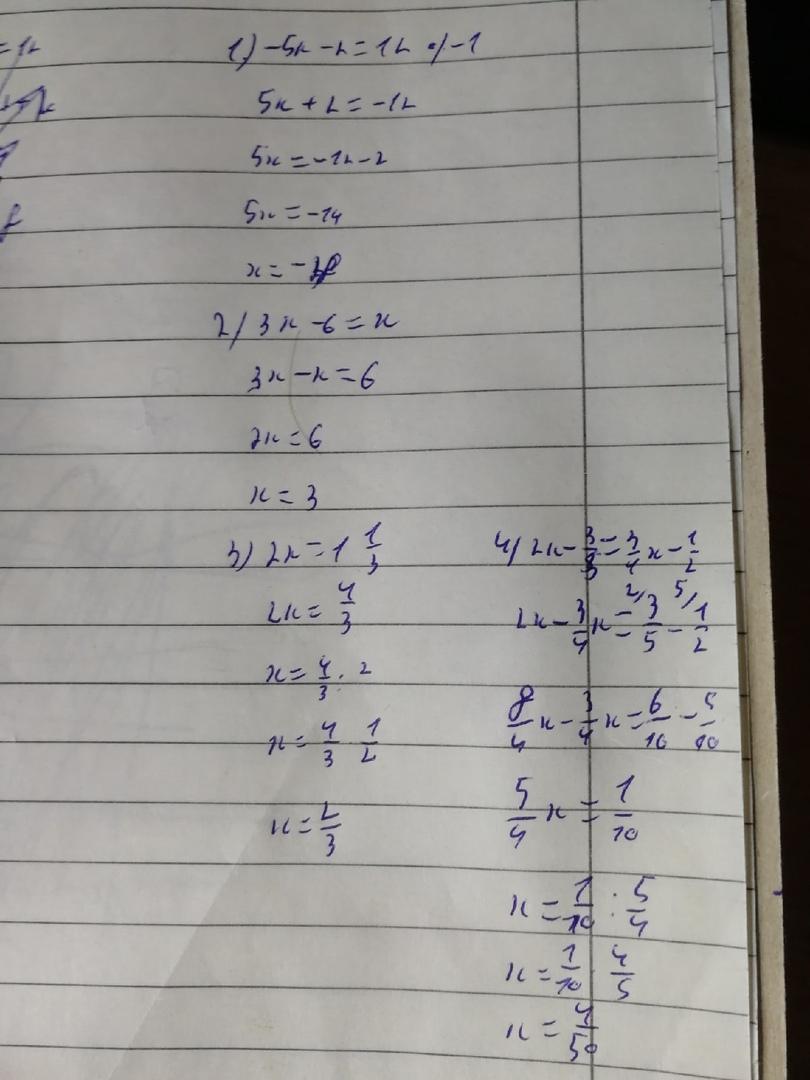 = 12
1) -5x - 2 = 12 •/-1
5x + 2 = -12
5x = -12 - 2
5x = -14
x = -
2/ 3x - 6 = x
3x - x = 6
2x = 6
x = 3
3) 2x = 1 1/3
2x = 4/3
x = 4/3 : 2
x = 4/3 · 1/2
x = 2/3
4/ 2x - 3/5 = 3/4 x - 1/2
2x - 3/4 x = 2/ 3/5 - 5/ 1/2
8/4 x - 3/4 x = 6/10 - 5/10
5/4 x = 1/10
x = 1/10 : 5/4
x = 1/10 · 4/5
x = 4/50